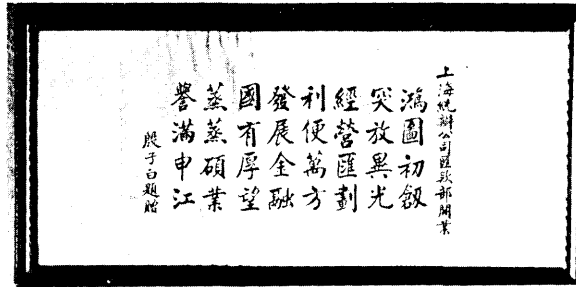 上海統辦公司匯款部開業
鴻圖初創
突放異光
經營匯劃
利便萬方
發展金融
國有厚望
蒸蒸碩業
譽滿申江
殷子白題贈